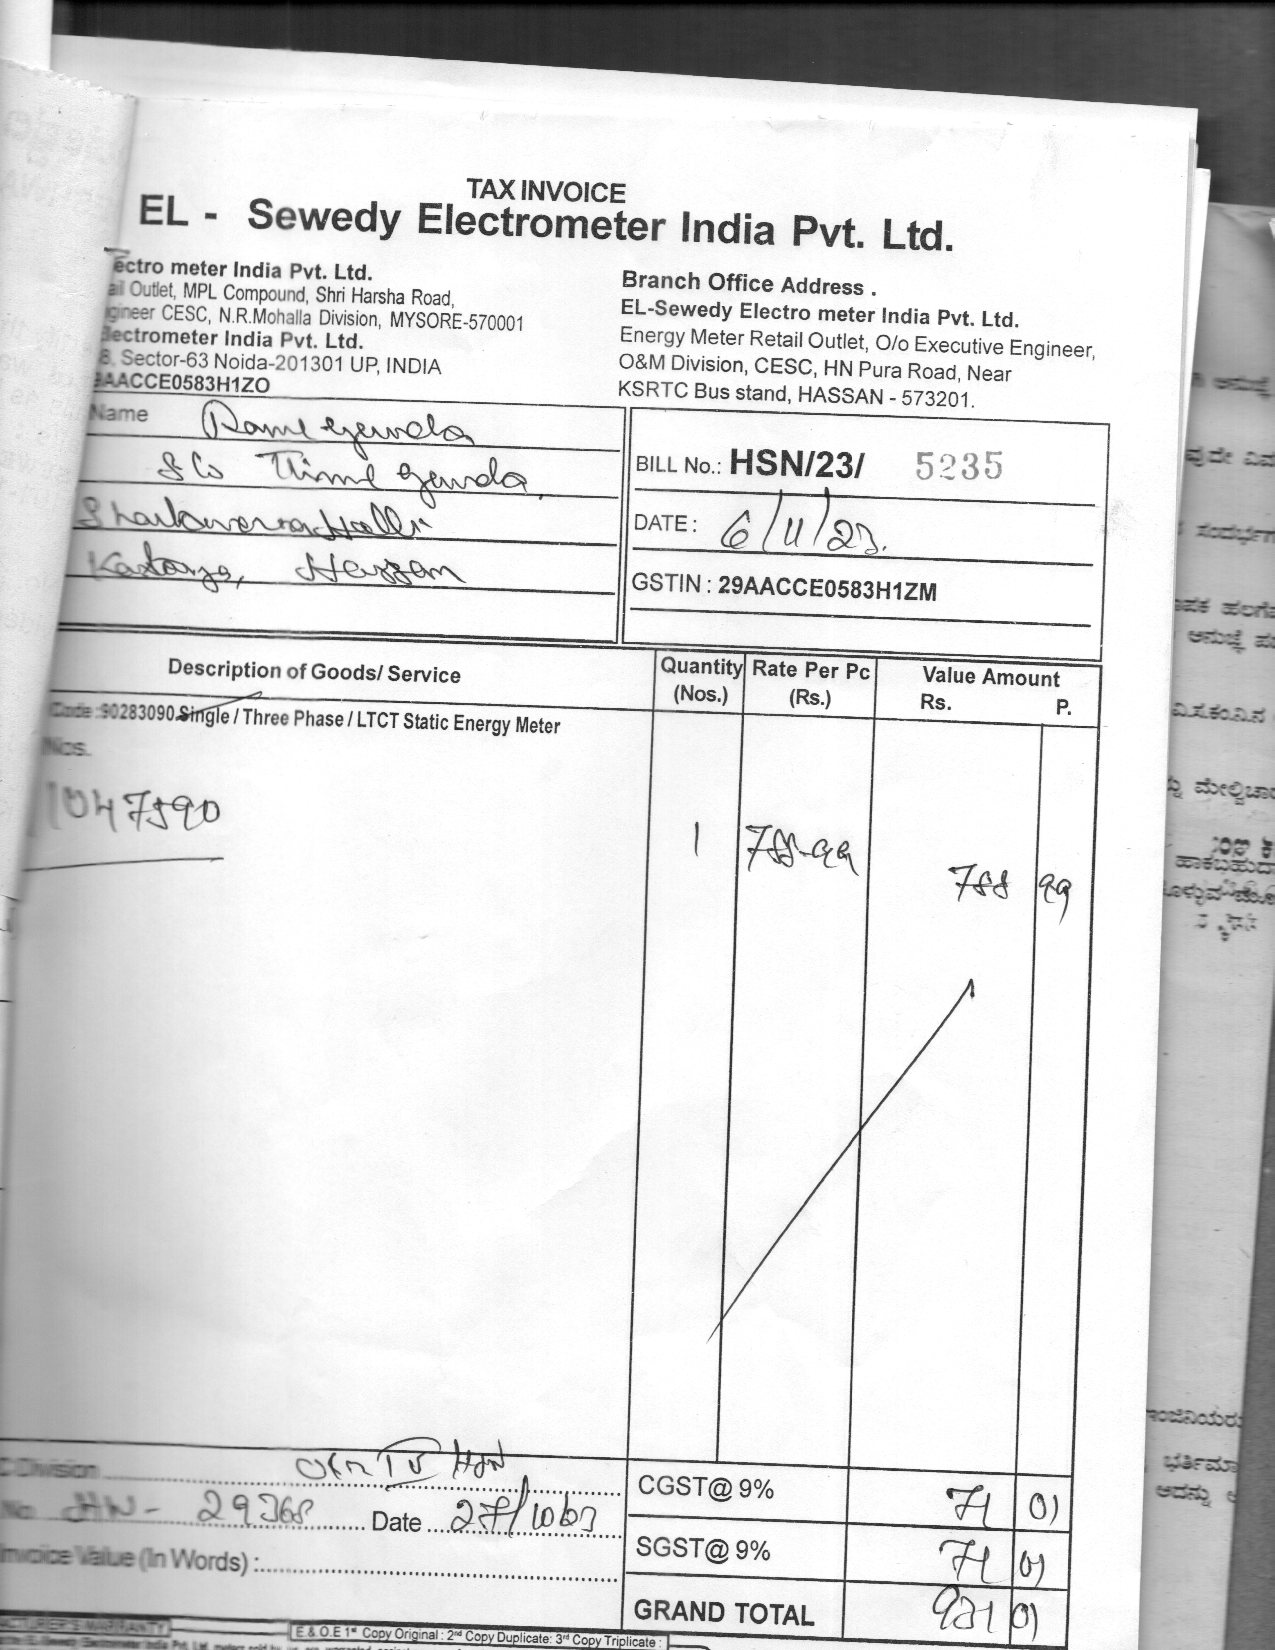 TAX INVOICE
EL - Sewedy Electrometer India Pvt. Ltd.
ectro meter India Pvt. Ltd.
ail Outlet, MPL Compound, Shri Harsha Road,
gineer CESC, N.R.Mohalla Division, MYSORE-570001
lectrometer India Pvt. Ltd.
8. Sector-63 Noida-201301 UP, INDIA
9AACCE0583H1ZO
Branch Office Address .
EL-Sewedy Electro meter India Pvt. Ltd.
Energy Meter Retail Outlet, O/o Executive Engineer,
O&M Division, CESC, HN Pura Road, Near
KSRTC Bus stand, HASSAN - 573201.
Name Ramegowda
S/o Thimmegowda,
Hassan
BILL No.: HSN/23/ 5235
DATE: 6/11/23.
GSTIN : 29AACCE0583H1ZM
Description of Goods/ Service Quantity (Nos.) Rate Per Pc (Rs.) Value Amount Rs. P.
Code :90283090 Single / Three Phase / LTCT Static Energy Meter
Nos.
1047590
1 788-99 788 99
C Division
No. HN - 29368 Date 27/10/23
Invoice Value (In Words) :
CGST@ 9% 71 01
SGST@ 9% 71 01
GRAND TOTAL 931 01
E.& O.E 1st Copy Original : 2nd Copy Duplicate: 3rd Copy Triplicate :